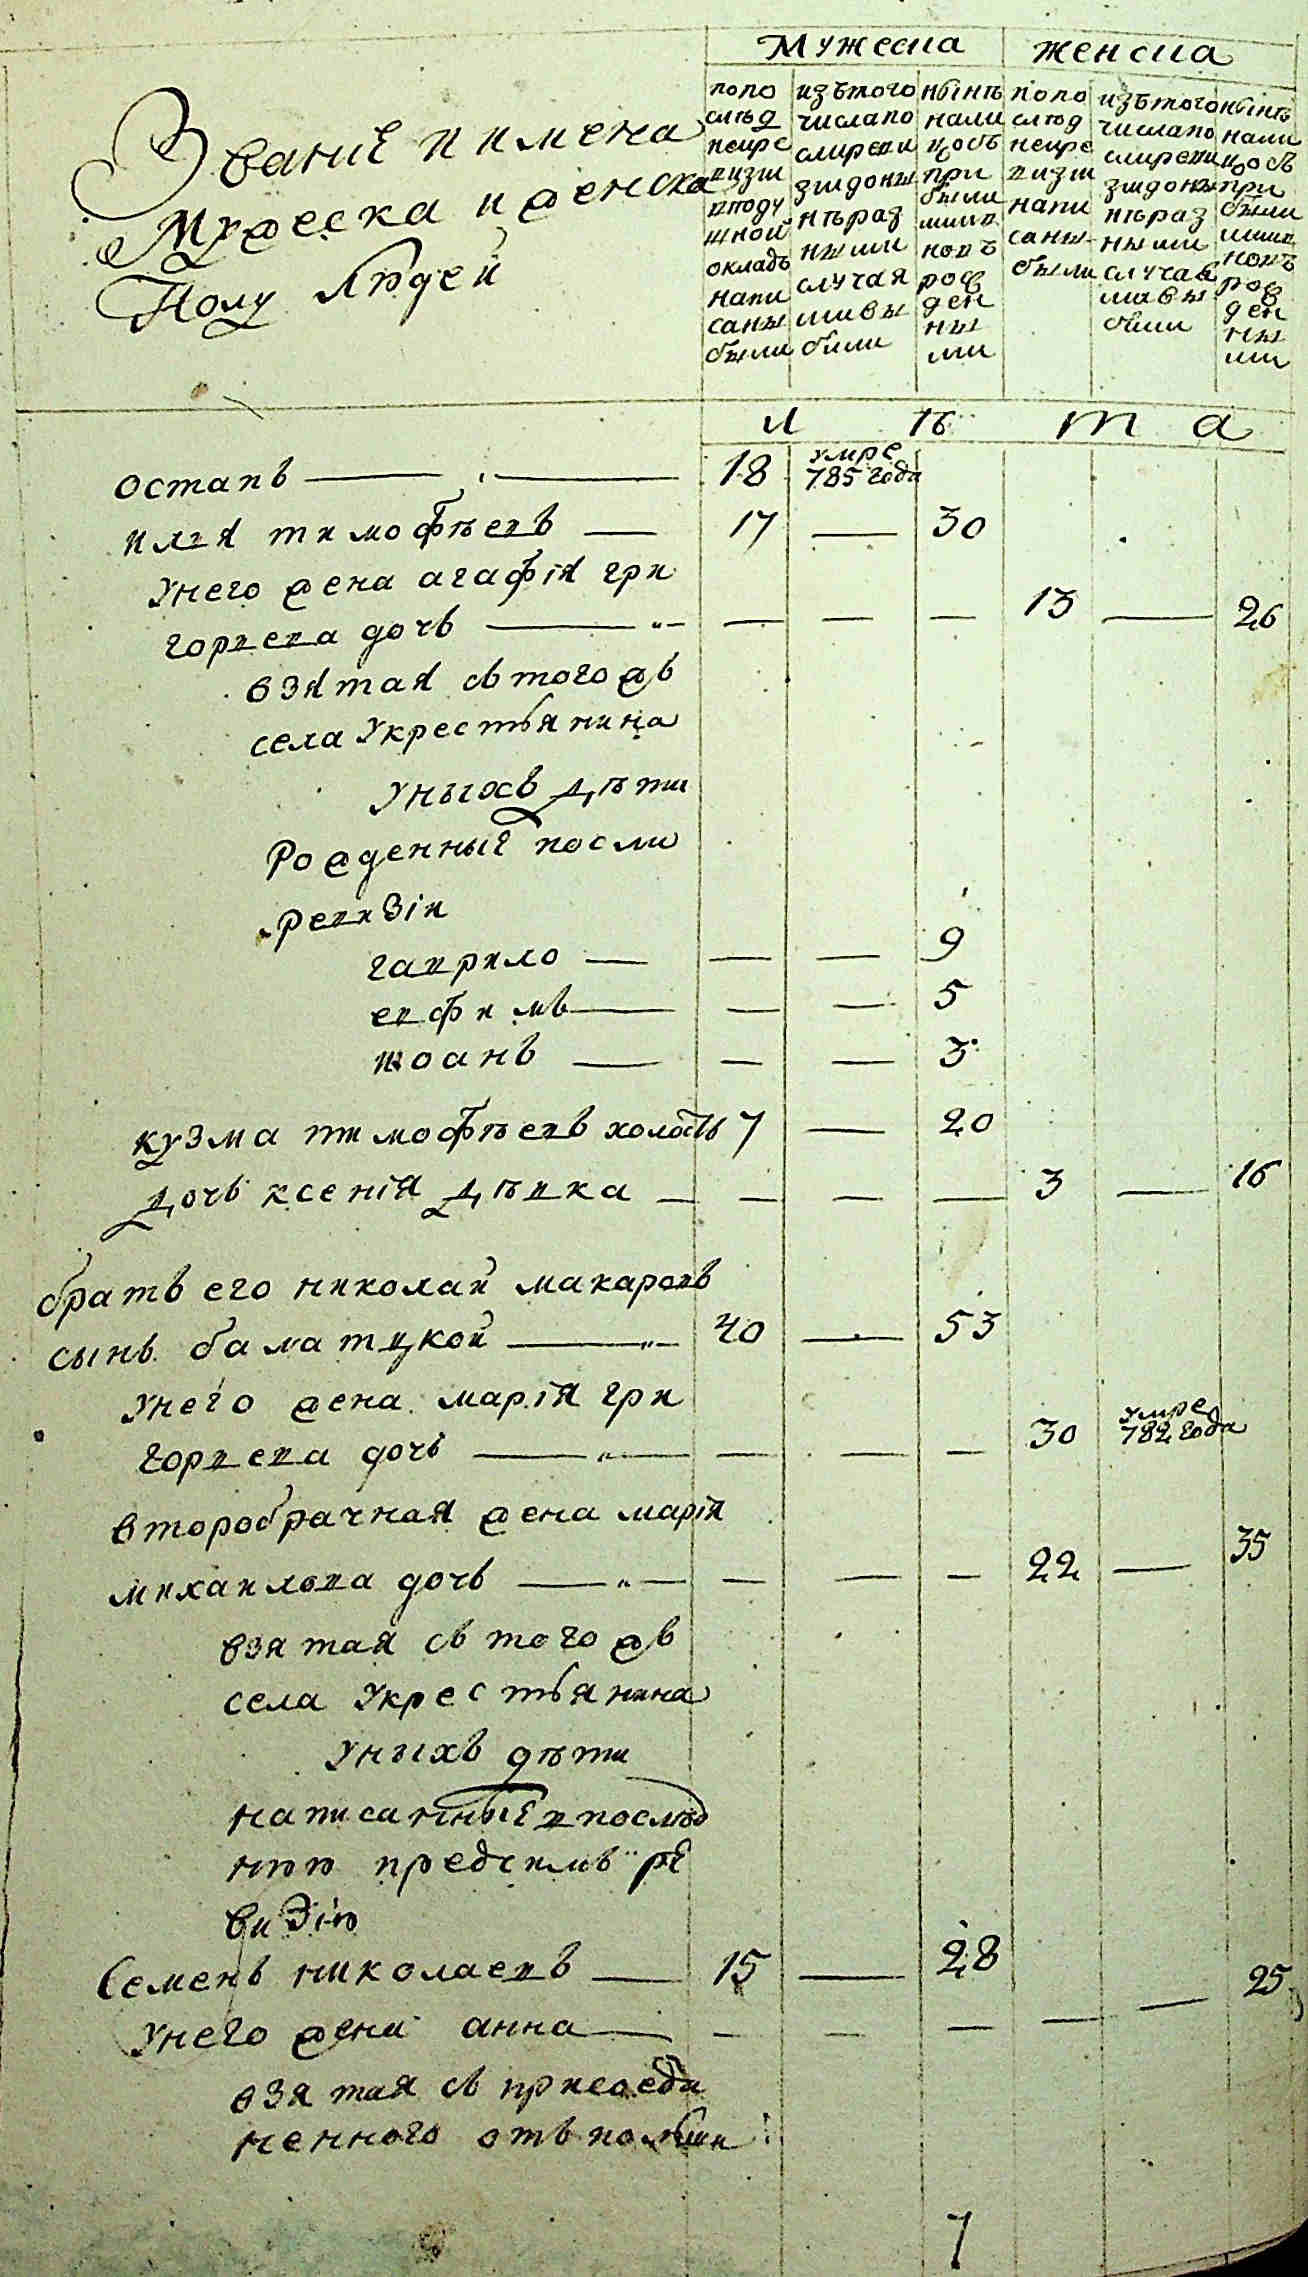 Мужеска женска
Званіе и имена
Мужеска и женска
Полу людей
попо
слѣд
ней ре
визїи
в поду
шной
окладъ
напи
саны
были
изътого
числа по
сле реви
зїи до ны
нѣ раз
ными
случая
ми вы
были
нынѣ
нали
цо съ
при
были
ми и
новъ
рож
ден
ны
ми
попо
слѣд
ней ре
визїи
напи
саны
были
изътого
числа по
сле реви
зїи до ны
нѣ раз
ными
случая
ми вы
были
нынѣ
нали
цо съ
при
были
ми и
новъ
рож
ден
ны
ми
л ѣ т а
остапъ 18 умре 785 года
илья тимофѣевъ 17 — 30
унего жена агафія гри
горьева дочь — — — 13 — 26
взятая съ тогожъ
села укрестьянина
уныхъ дѣти
рожденные посли
ревизіи
гаврило — — 9
евфимъ — — 5
іоанъ — — 3
кузма тимофѣевъ холостъ 7 — 20
дочь ксенія дѣвка — — — 3 — 16
братъ его николай макаровъ
сынъ баматцкой 40 — 53
унего жена марія гри
горьева дочь — — — 30 умре 782 года
второбрачная жена марія
михайлова дочь — — — 22 — 35
взятая съ тогожъ
села укрестьянина
уныхъ дѣти
написанные в послѣд
нюю предсимъ ре
визію
Семенъ николаевъ 15 — 28
унего жена анна — — — — — 25
взятая съ присоеди
ненного отъ полши
7